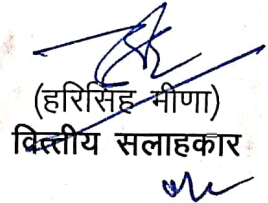 (हरिसिंह मीणा)
वित्तीय सलाहकार